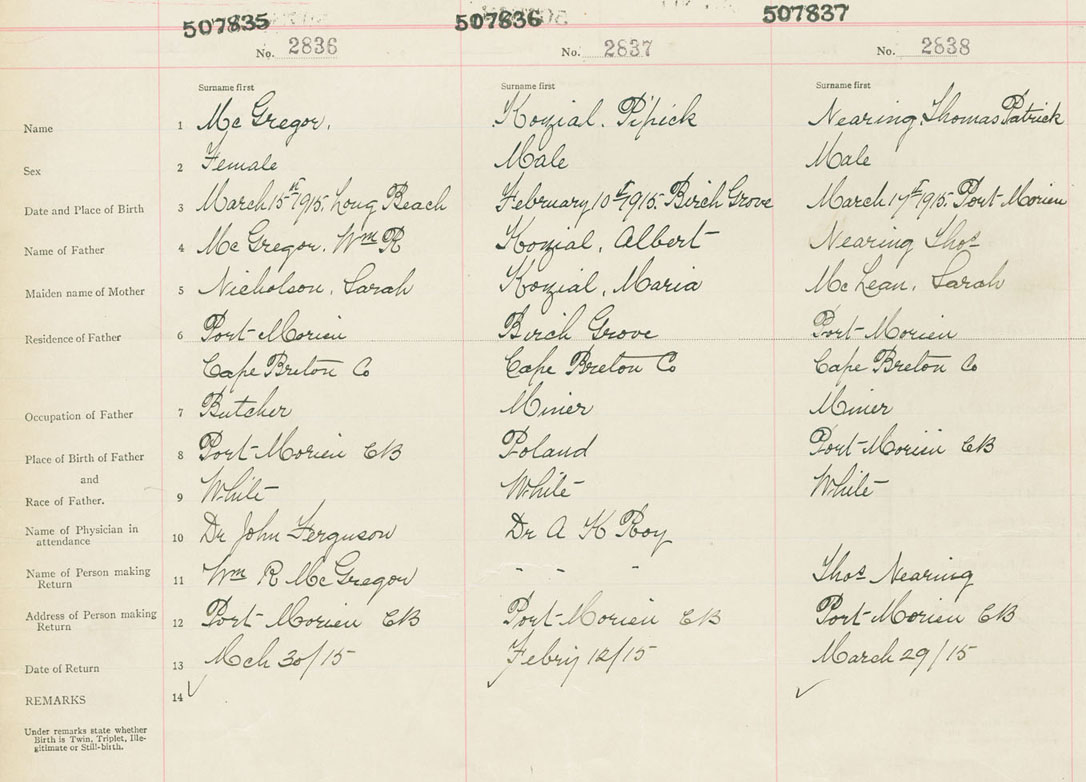 507835 507836 507837
No. 2836 No. 2837 No. 2838
Surname first Surname first Surname first
Name 1 McGregor. Kozial. Pipick Nearing, Thomas Patrick
Sex 2 Female Male Male
Date and Place of Birth 3 March 15th 1915. Long Beach February 10th 1915. Birch Grove March 17th 1915. Port Morien
Name of Father 4 McGregor. Wm R Kozial, Albert Nearing Thos
Maiden name of Mother 5 Nicholson. Sarah Kozial, Maria McLean. Sarah
Residence of Father 6 Port Morien Birch Grove Port Morien
Cape Breton Co Cape Breton Co Cape Breton Co
Occupation of Father 7 Butcher Miner Miner
Place of Birth of Father 8 Port Morien CB Poland Port Morien CB
and
Race of Father. 9 White White White
Name of Physician in attendance 10 Dr John Ferguson Dr A K Roy
Name of Person making Return 11 Wm R McGregor " " " Thos Nearing
Address of Person making Return 12 Port Morien CB Port Morien CB Port Morien CB
Date of Return 13 Mch 30/15 Febry 12/15 March 29/15
REMARKS 14
Under remarks state whether
Birth is Twin, Triplet, Ille-
gitimate or Still-birth.